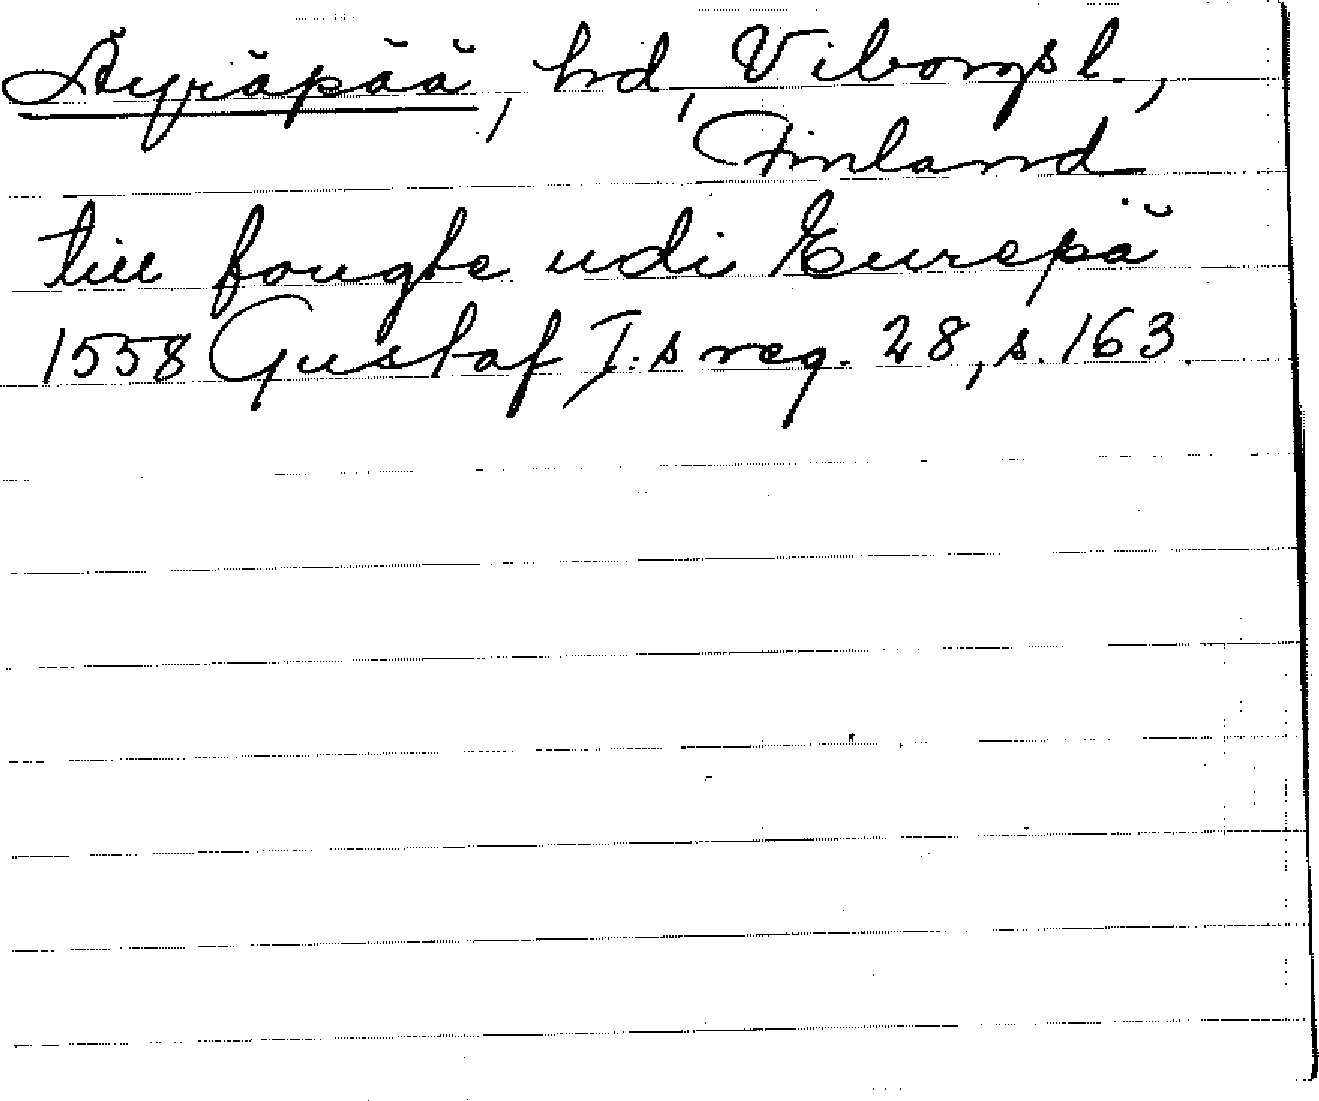 Äyräpää, hd, Viborgs l.,
Finland
till fougte udi Eurepä
1558 Gustaf I:s reg. 28, s. 163.